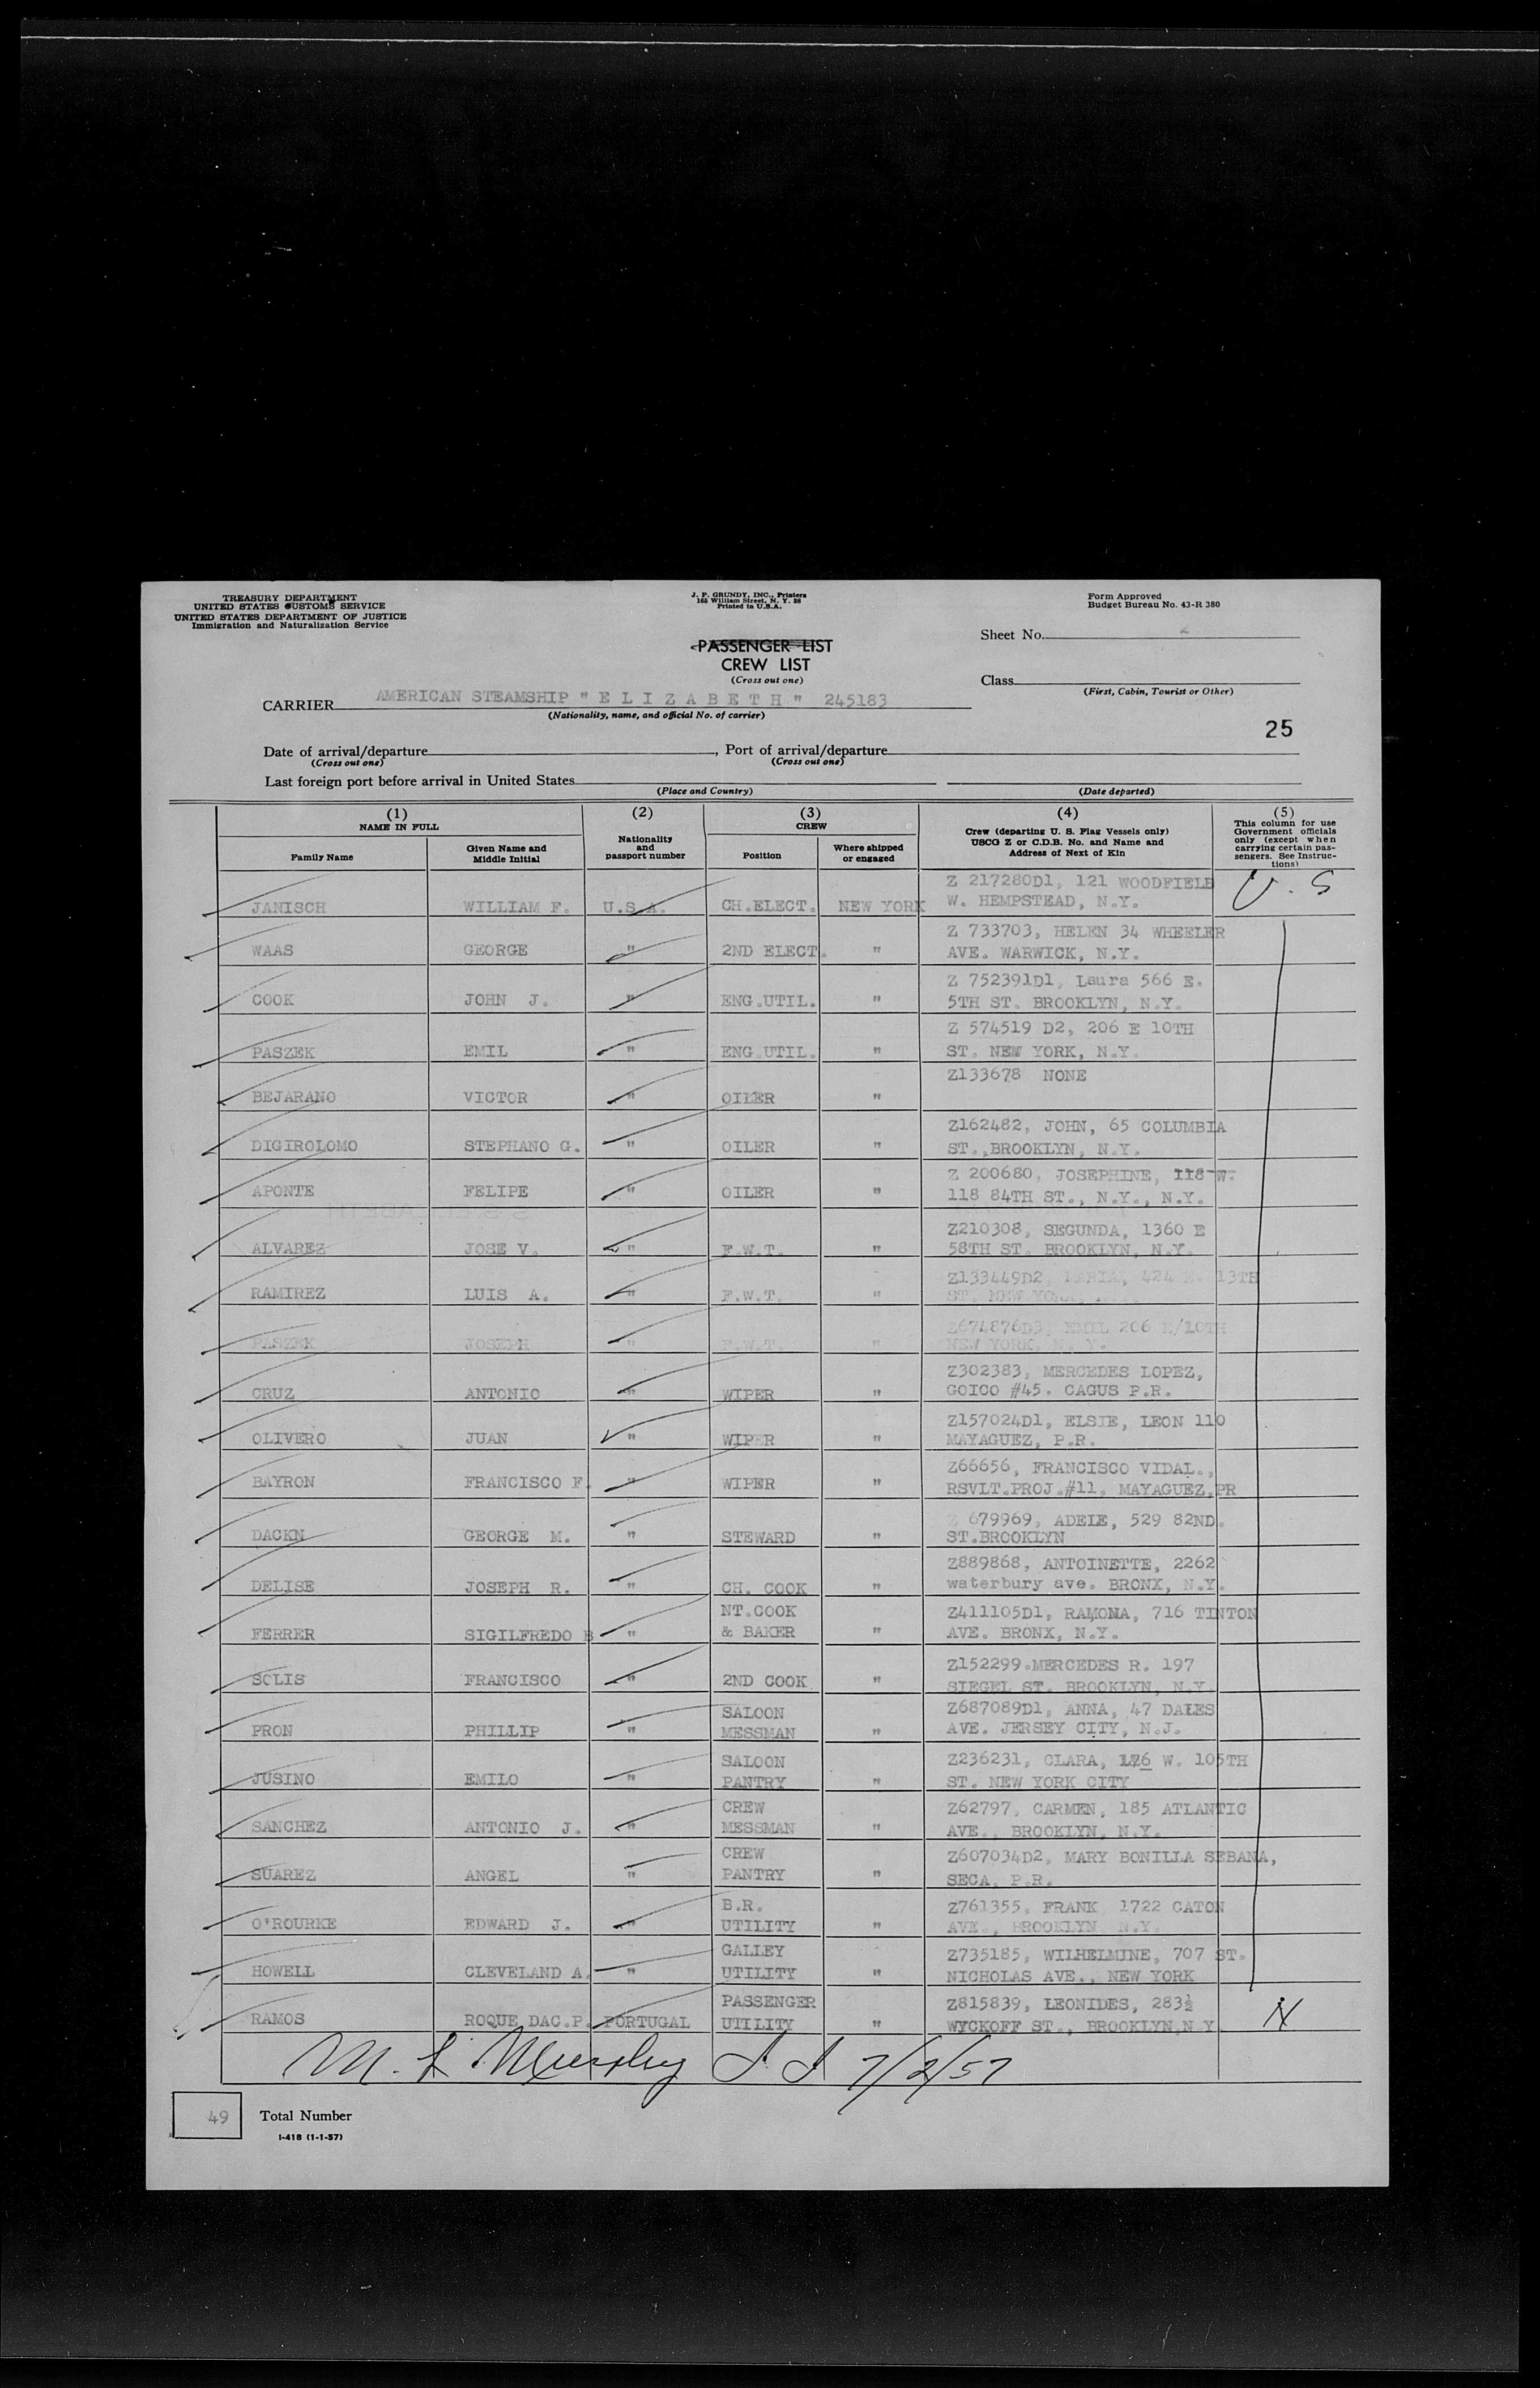 TREASURY DEPARTMENT
UNITED STATES CUSTOMS SERVICE
UNITED STATES DEPARTMENT OF JUSTICE
Immigration and Naturalization Service
J. F. GRUNDY, INC., Printers
165 William Street, N. Y. 38
Printed in U.S.A.
Form Approved
Budget Bureau No. 43-R 380
Sheet No. 2
PASSENGER LIST
CREW LIST
(Cross out one)
Class
(First, Cabin, Tourist or Other)
CARRIER AMERICAN STEAMSHIP " E L I Z A B E T H " 245183
(Nationality, name, and official No. of carrier)
25
Date of arrival/departure , Port of arrival/departure
(Cross out one) (Cross out one)
Last foreign port before arrival in United States
(Place and Country) (Date departed)
(1) (2) (3) (4) (5)
NAME IN FULL
Family Name
Given Name and
Middle Initial
Nationality
and
passport number
CREW
Position
Where shipped
or engaged
Crew (departing U. S. Flag Vessels only)
USCG Z or C.D.B. No. and Name and
Address of Next of Kin
This column for use
Government officials
only (except when
carrying certain pas-
sengers. See Instruc-
tions)
Z 217280D1, 121 WOODFIELD
JANISCH WILLIAM F. U.S.A. CH.ELECT. NEW YORK W. HEMPSTEAD, N.Y. U. S
Z 733703, HELEN 34 WHEELER
WAAS GEORGE " 2ND ELECT. " AVE. WARWICK, N.Y.
Z 752391D1, Laura 566 E.
COOK JOHN J. " ENG.UTIL. " 5TH ST. BROOKLYN, N.Y.
Z 574519 D2, 206 E 10TH
PASZEK EMIL " ENG.UTIL. " ST. NEW YORK, N.Y.
Z133678 NONE
BEJARANO VICTOR " OILER "
Z162482, JOHN, 65 COLUMBIA
DIGIROLOMO STEPHANO G. " OILER " ST.,BROOKLYN, N.Y.
Z 200680, JOSEPHINE, 118 W.
APONTE FELIPE " OILER " 118 84TH ST., N.Y., N.Y.
Z210308, SEGUNDA, 1360 E
ALVAREZ JOSE V. " F.W.T. " 58TH ST. BROOKLYN, N.Y.
Z133449D2, 424 E. 13TH
RAMIREZ LUIS A. " F.W.T. " ST. NEW YORK,
Z674876D3, EMIL 206 E/10TH
PASZEK JOSEPH " F.W.T. " NEW YORK, N. Y.
Z302383, MERCEDES LOPEZ,
CRUZ ANTONIO " WIPER " GOICO #45. CAGUS P.R.
Z157024D1, ELSIE, LEON 110
OLIVERO JUAN " WIPER " MAYAGUEZ, P.R.
Z66656, FRANCISCO VIDAL.,
BAYRON FRANCISCO F. " WIPER " RSVLT.PROJ.#11, MAYAGUEZ,PR
Z 679969, ADELE, 529 82ND.
DACKN GEORGE M. " STEWARD " ST.BROOKLYN
Z889868, ANTOINETTE, 2262
DELISE JOSEPH R. " CH. COOK " waterbury ave. BRONX, N.Y.
NT.COOK Z411105D1, RAMONA, 716 TINTON
FERRER SIGILFREDO B " & BAKER " AVE. BRONX, N.Y.
Z152299.MERCEDES R. 197
SOLIS FRANCISCO " 2ND COOK " SIEGEL ST. BROOKLYN, N.Y.
SALOON Z687089D1, ANNA, 47 DALES
PRON PHILLIP " MESSMAN " AVE. JERSEY CITY, N.J.
SALOON Z236231, CLARA, 176 W. 105TH
JUSINO EMILO " PANTRY " ST. NEW YORK CITY
CREW Z62797, CARMEN, 185 ATLANTIC
SANCHEZ ANTONIO J. " MESSMAN " AVE., BROOKLYN, N.Y.
CREW Z607034D2, MARY BONILLA SEBANA,
SUAREZ ANGEL " PANTRY " SECA, P.R.
B.R. Z761355, FRANK 1722 CATON
O'ROURKE EDWARD J. " UTILITY " AVE., BROOKLYN N.Y.
GALLEY Z735185, WILHELMINE, 707 ST.
HOWELL CLEVELAND A. " UTILITY " NICHOLAS AVE., NEW YORK
PASSENGER Z815839, LEONIDES, 283½
RAMOS ROQUE DAC.P. PORTUGAL UTILITY " WYCKOFF ST., BROOKLYN,N.Y
M. L Murphy 7/2/57
49 Total Number
I-418 (1-1-57)